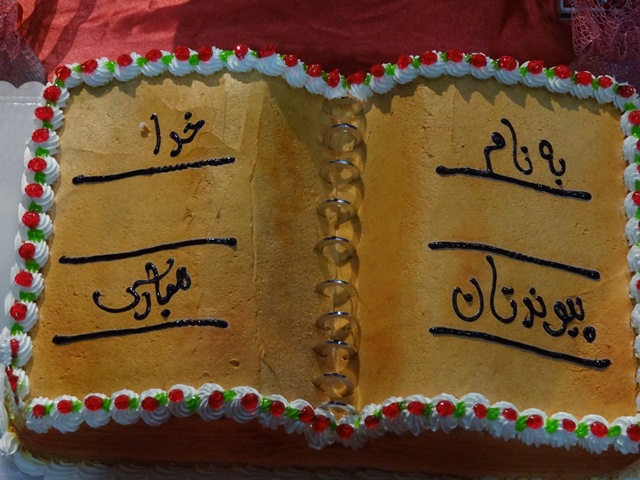 به نام خدا
پیوندتان مبارک